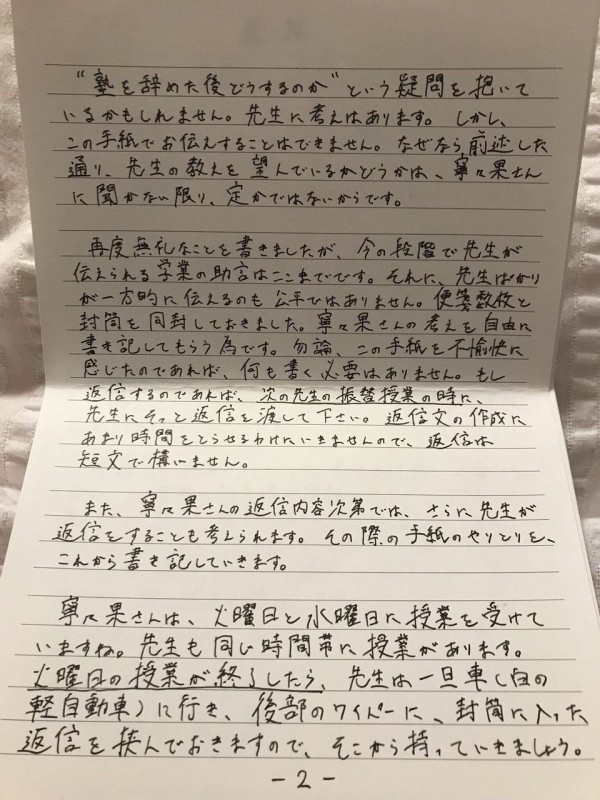 “塾を辞めた後どうするのか”という疑問を抱いて
いるかもしれません。先生に考えはあります。しかし、
この手紙でお伝えすることはできません。なぜなら前述した
通り、先生の教えを望んでいるかどうかは、寧々果さん
に聞かない限り、定かではないからです。
再度無礼なことを書きましたが、今の段階で先生が
伝えられる学業の助言はここまでです。それに、先生ばかり
が一方的に伝えるのも公平ではありません。便箋数枚と
封筒を同封しておきました。寧々果さんの考えを自由に
書き記してもらう為です。勿論、この手紙を不愉快に
感じたのであれば、何も書く必要はありません。もし
返信するのであれば、次の先生の振替授業の時に、
先生にそっと返信を渡して下さい。返信文の作成に
あまり時間をとらせるわけにいきませんので、返信は
短文で構いません。
また、寧々果さんの返信内容次第では、さらに先生が
返信をすることも考えられます。その際の手紙のやりとりを、
これから書き記していきます。
寧々果さんは、火曜日と水曜日に授業を受けて
いますね。先生も同じ時間帯に授業があります。
火曜日の授業が終了したら、先生は一旦車(白の
軽自動車)に行き、後部のワイパーに、封筒に入った
返信を挟んでおきますので、そこから持っていきましょう。
-2-